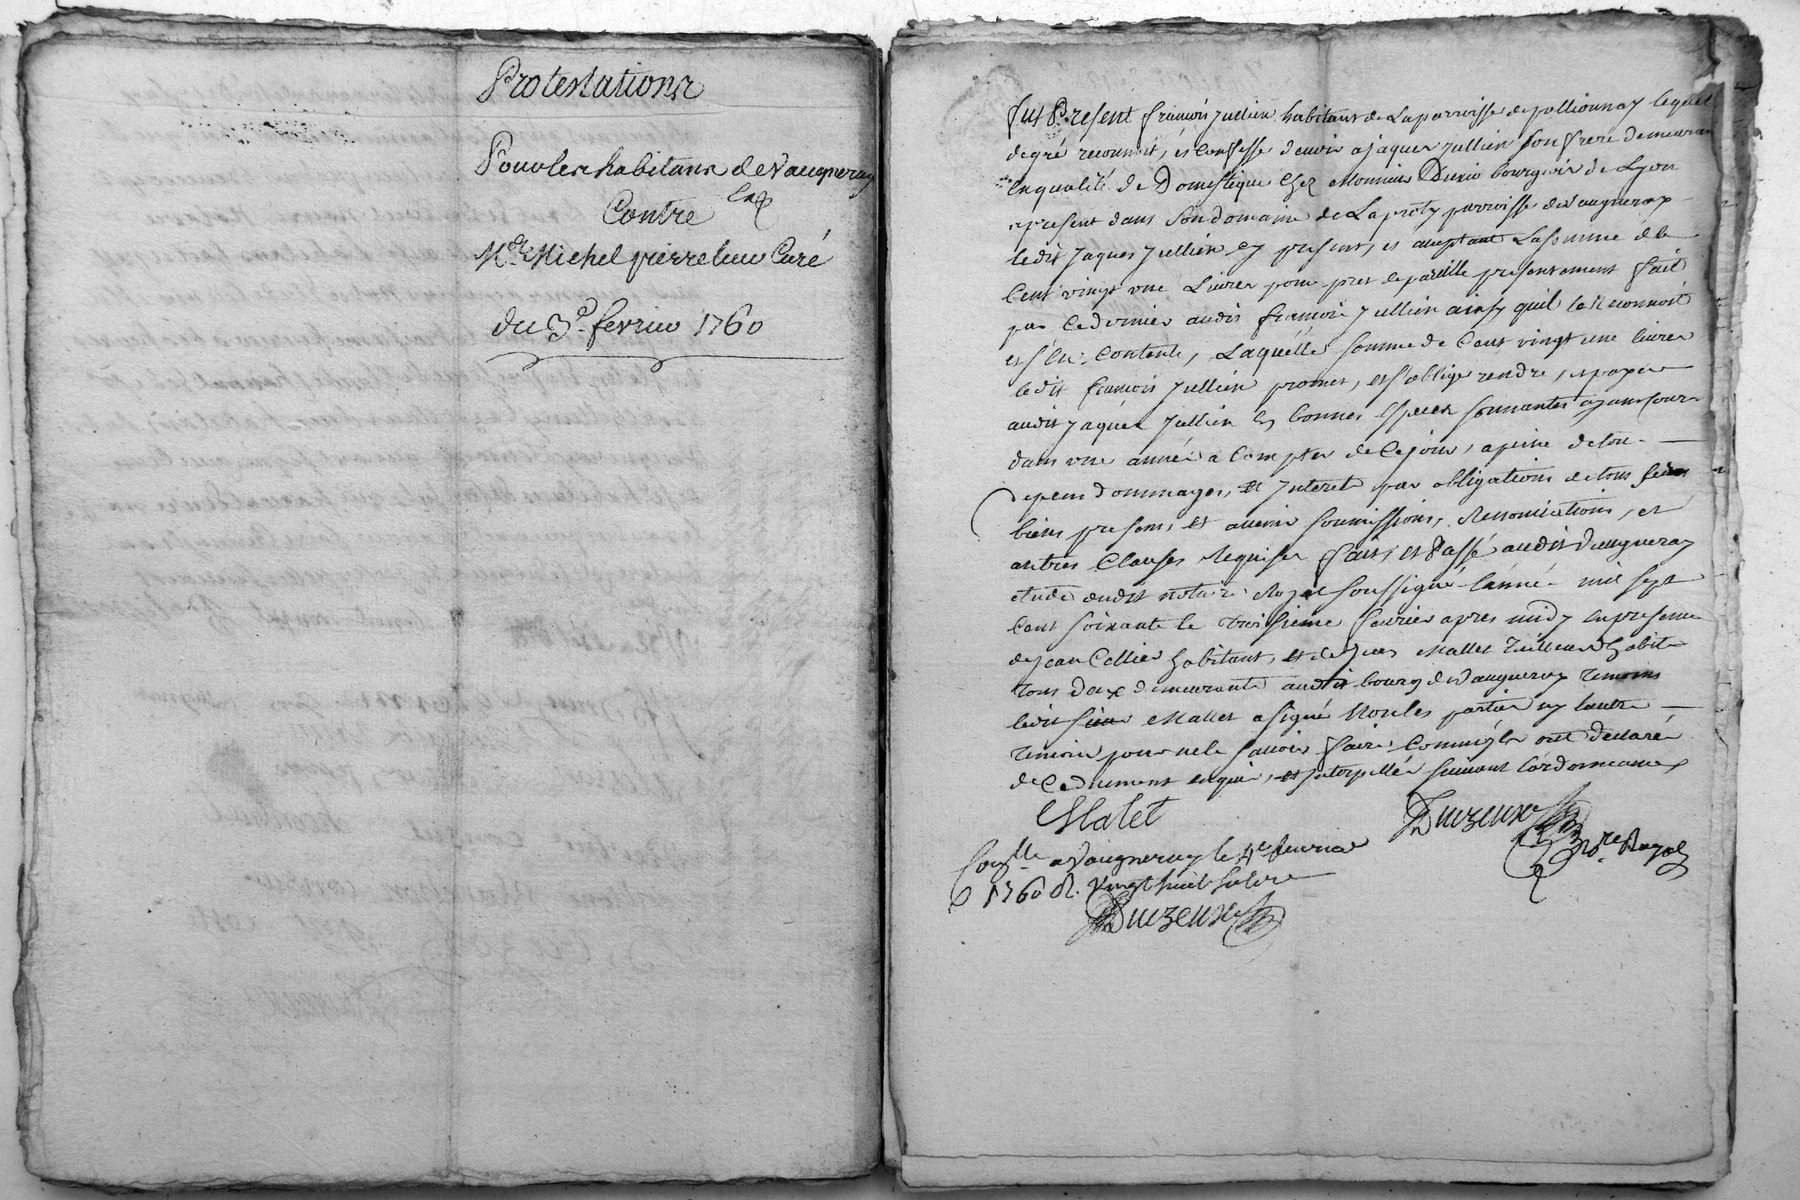 Protestations
Pour les habitans de Vaugneray
Contre
Mre Michel pierre leur Curé
du 3e fevrier 1760
fut Present françois jullien habitant de La parroisse de pollionnay lequel
de gré reconnoit, et Confesse devoir a jaques jullien Son frere demeurant
En qualité de Domestique Chez Monsieur bourgeois de Lyon
a present dans Son domaine de La parroisse de Vaugneray
ledit jaques jullien cy present, et acceptant La somme de
Cent vingt une Livres pour prest de pareille presentement fait
par Ce dernier audit françois jullien ainsy quil le Reconnoit
et s'en Contente, Laquelle Somme de Cent vingt une livres
ledit françois jullien promet, et s'oblige rendre, et payer
audit jaques jullien En bonnes Especes Sonnantes ayant Cour
dans une année a Compter de Ce jour, a peine de tou
depens dommages, et Interets par obligations de tous ses
biens presens, et avenir Soumissions, Renonciations, et
autres Clauses Requises fait, et Passé audit Vaugneray
etude dudit notaire Royal Soussigné l'année mil sept
Cent Soixante le troisieme fevrier apres midy en presence
de jean Collier habitant, et de Mallet Tailleur d'habit
tous deux demeurants audit bourg de Vaugneray temoins
ledit Sieur Mallet a signé Non les parties ny l'autre
temoin pour ne le Sçavoir faire Comme ils ont declaré
de Ce dument enquis, et Interpellés Suivant l'ordonnance
Malet Duezeux
nore Royal
Conlle a Vaugneray le 4e fevrier
1760 R. vingt huit sols
Duezeux